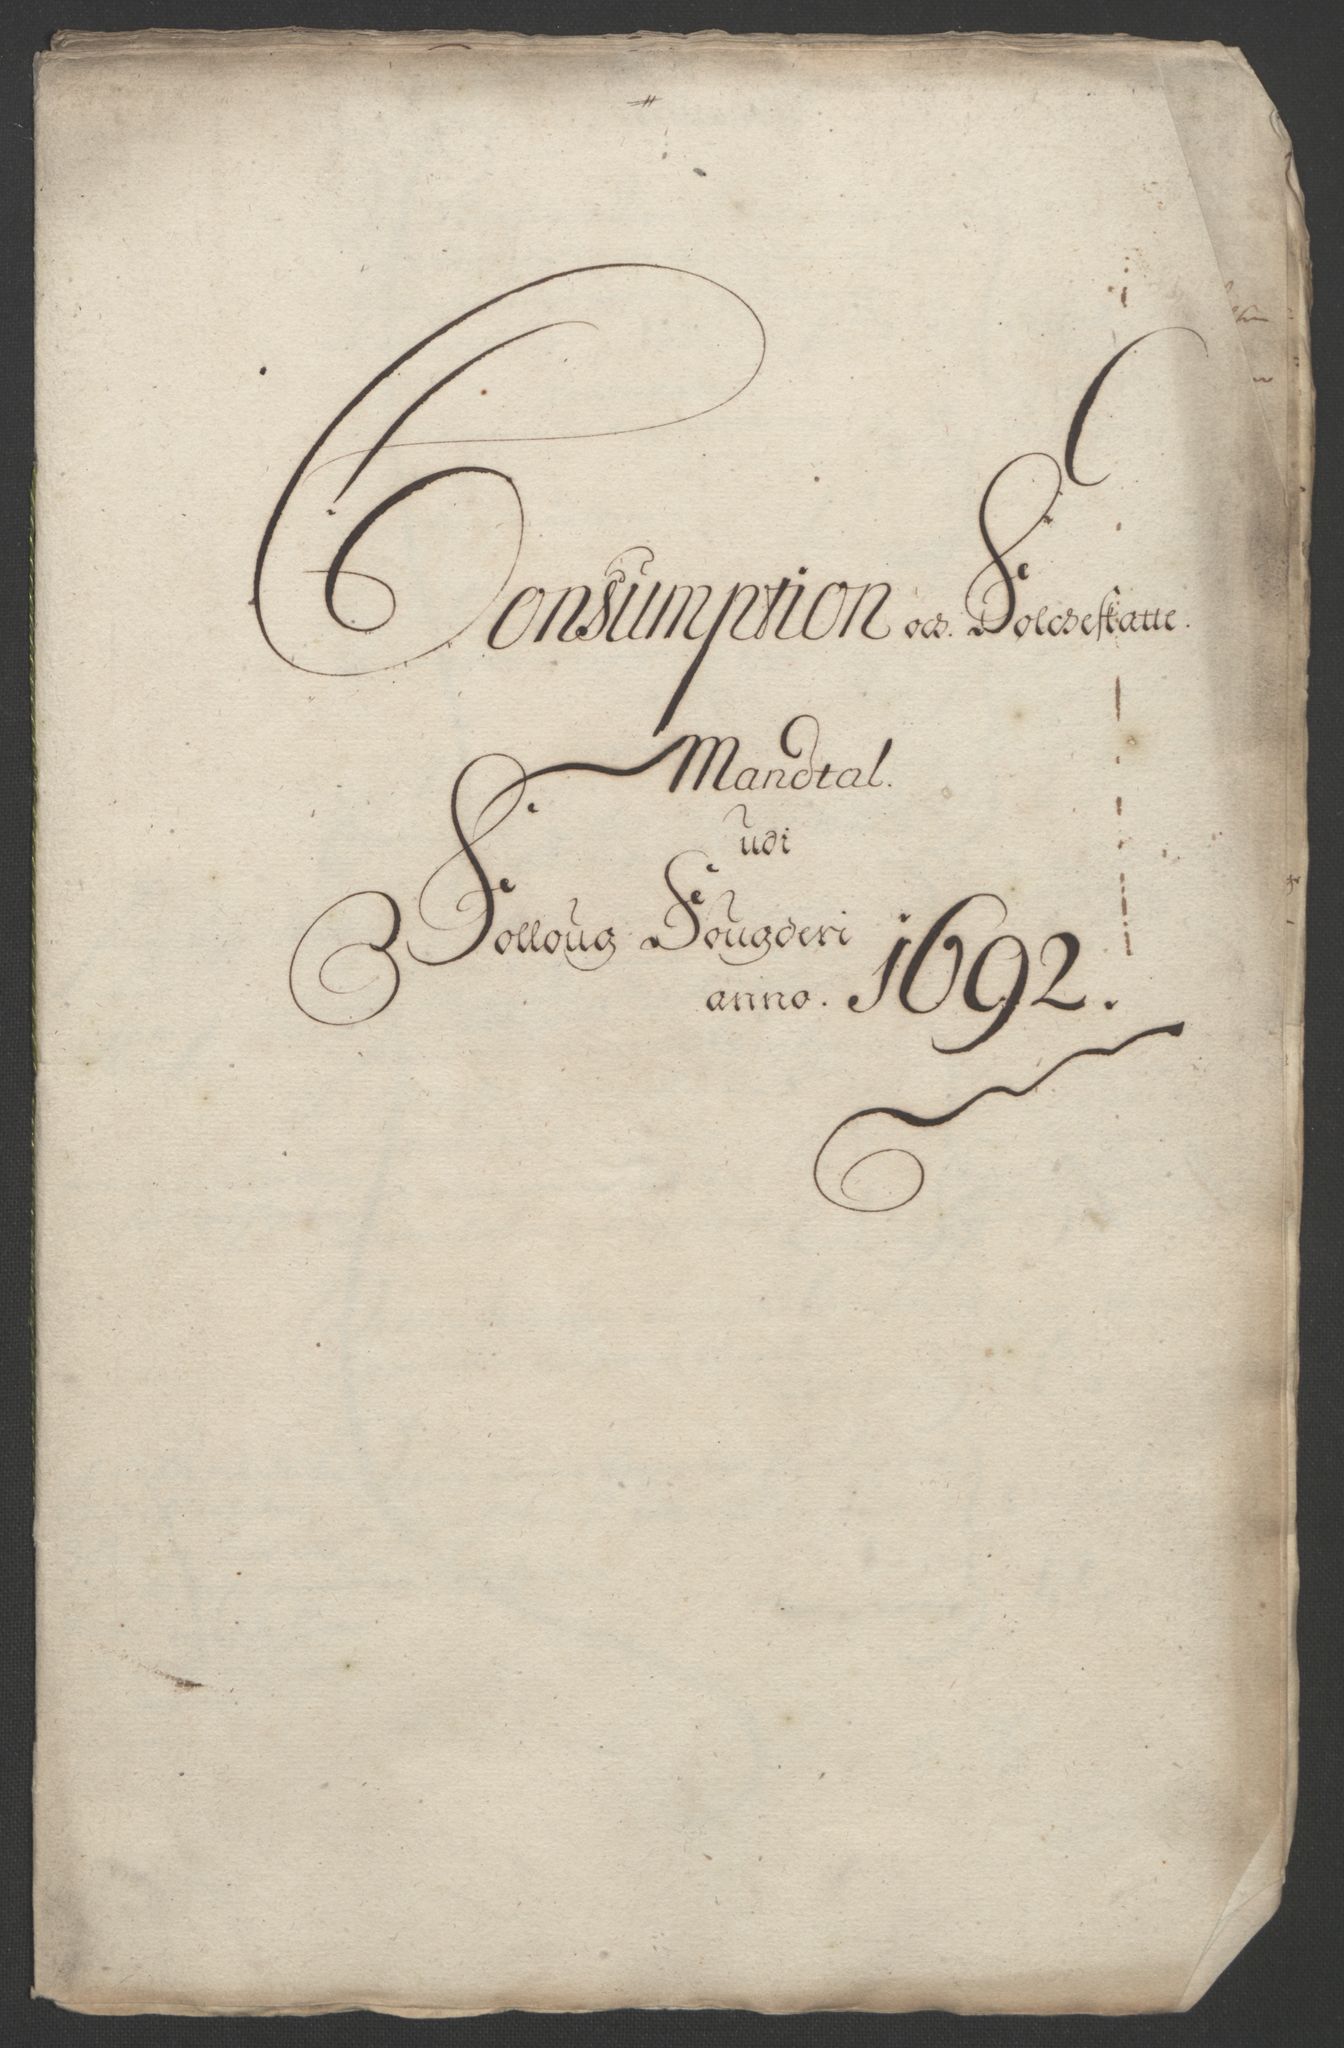 Consumption och Folcheskatte.
Mandtal.
udi
Folloug Fougderi
anno. 1692.